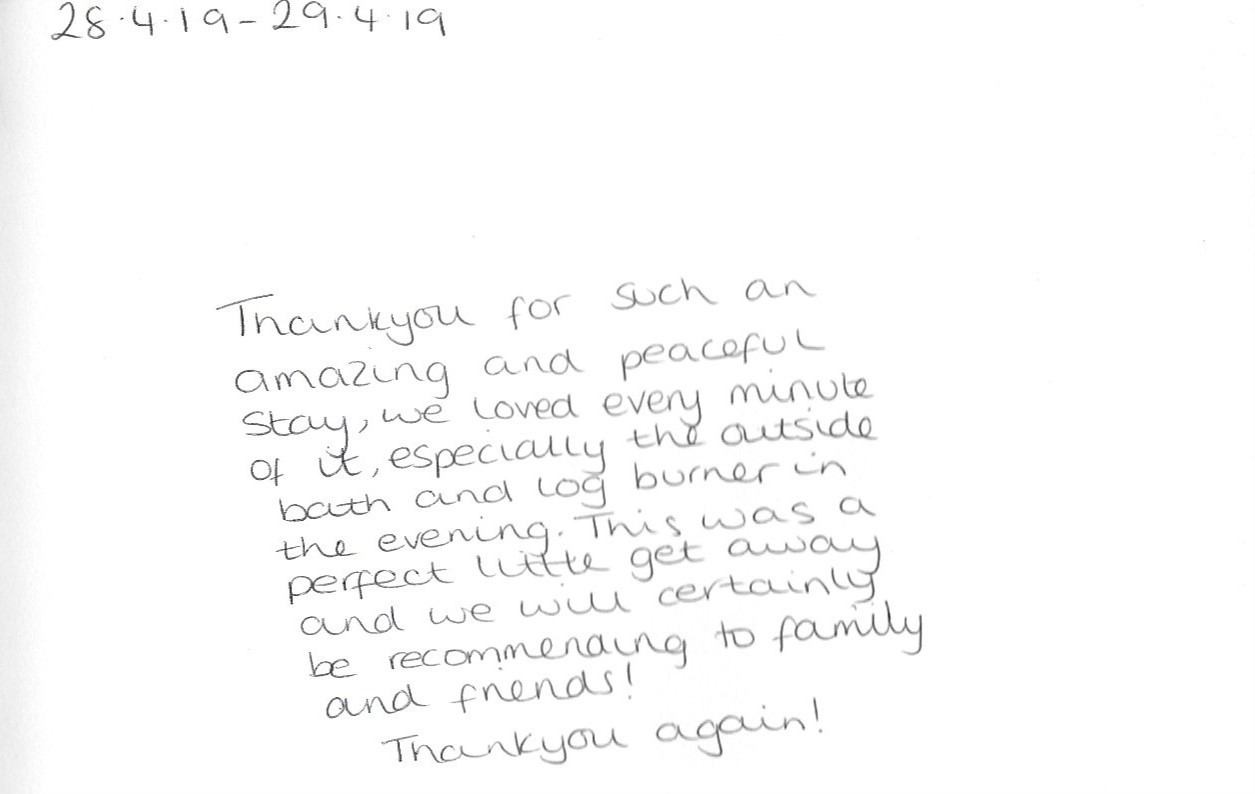 28.4.19 - 29.4.19
Thankyou for such an
amazing and peaceful
stay, we loved every minute
of it, especially the outside
bath and log burner in
the evening. This was a
perfect little get away
and we will certainly
be recommending to family
and friends!
Thankyou again!